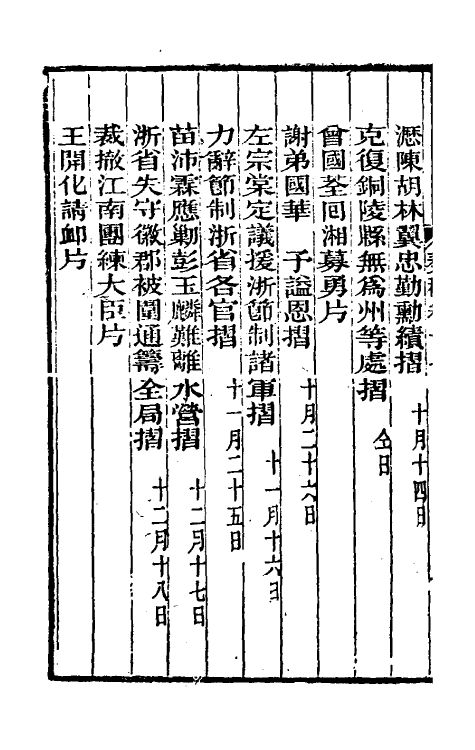 瀝陳胡林翼忠勤勳績摺 十月十四日
克復銅陵縣無爲州等處摺 仝日
曾國荃回湘募勇片
謝弟國華 予諡恩摺 十月二十六日
左宗棠定議援浙節制諸軍摺 十一月十六日
力辭節制浙省各官摺 十一月二十五日
苗沛霖應勦彭玉麟難離水營摺 十二月十七日
浙省失守徽郡被圍通籌全局摺 十二月十八日
裁撤江南團練大臣片
王開化請卹片